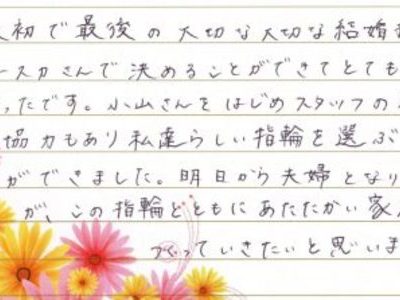 初で最後の大切な大切な結婚
ースカさんで決めることができてとても
ったです。小山さんをはじめスタッフの
協力もあり私達らしい指輪を選ぶ
ができました。明日から夫婦となり
が、この指輪とともにあたたかい家
つくっていきたいと思いま